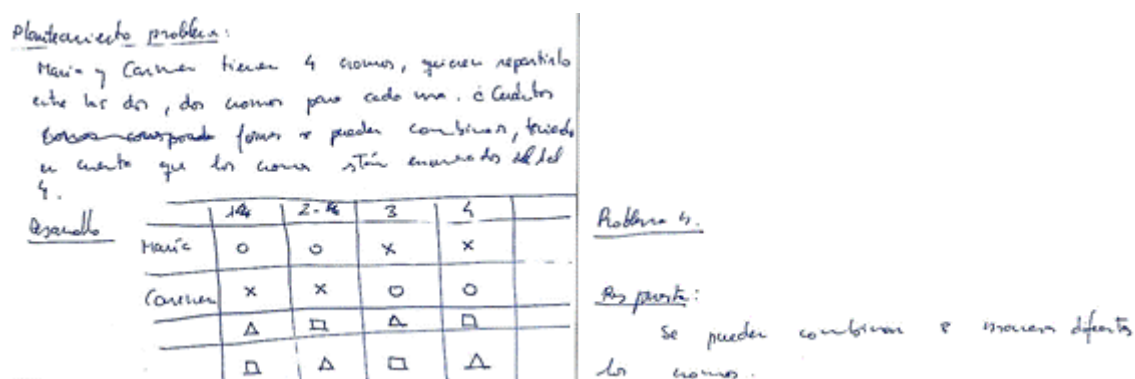 Planteamiento problema:
Maria y Carmen tienen 4 cromos, quieren repartirlo
entre las dos, dos cromos para cada una. ¿Cuántos
formas se pueden combinar, teniendo
en cuenta que los cromos están enumerados del
4.
Desarrollo
1 2 3 4
María O O X X
Carmen X X O O
△ □ △ □
□ △ □ △
Problema 4.
Respuesta:
Se pueden combinar maneras diferentes
los cromos.